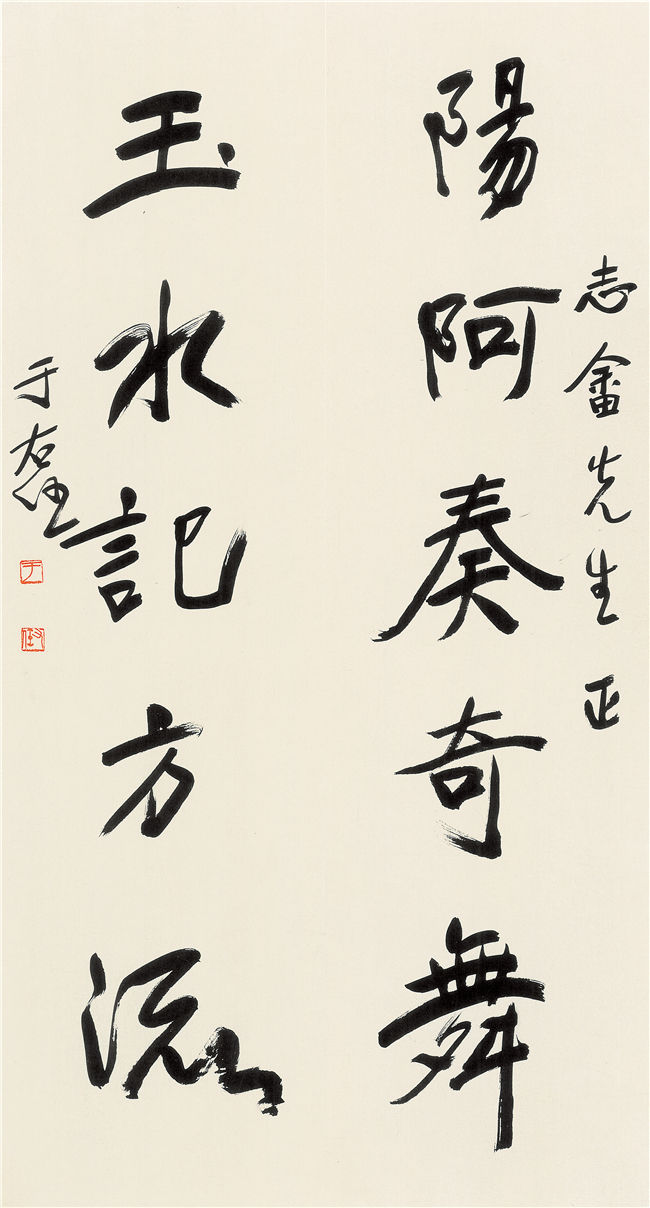 志畬先生正
陽阿奏奇舞
玉水記方流
于右任